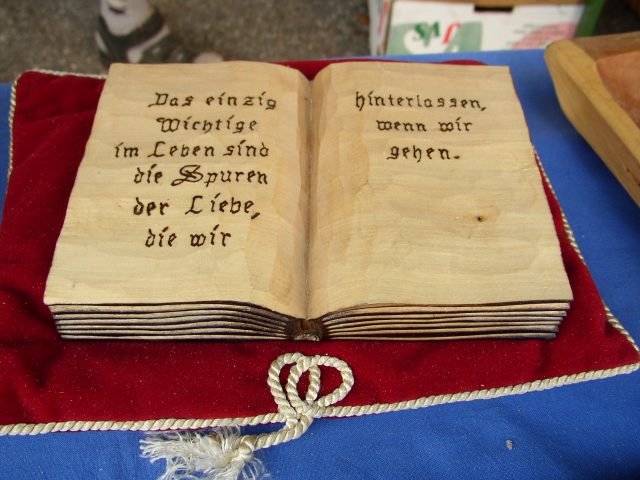 Das einzig
Wichtige
im Leben sind
die Spuren
der Liebe,
die wir
hinterlassen,
wenn wir
gehen.